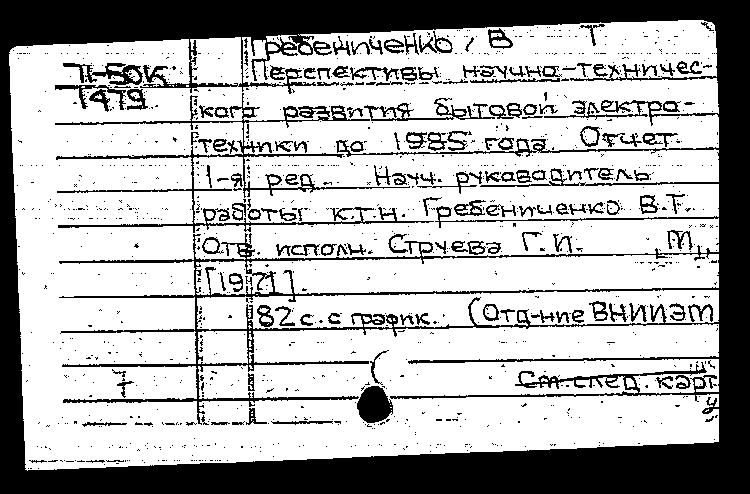 Гребениченко, В Т
П-50К
1479
Перспективы научно-техничес-
кого развития бытовой электро-
техники до 1985 года. Отчет.
1-я ред. Науч. руководитель
работы к.т.н. Гребениченко В.Т.
Отв. исполн. Струева Г.И. М.,
[1971].
82 с. с график. (Отд-ние ВНИИЭМ
7
См. след. карт